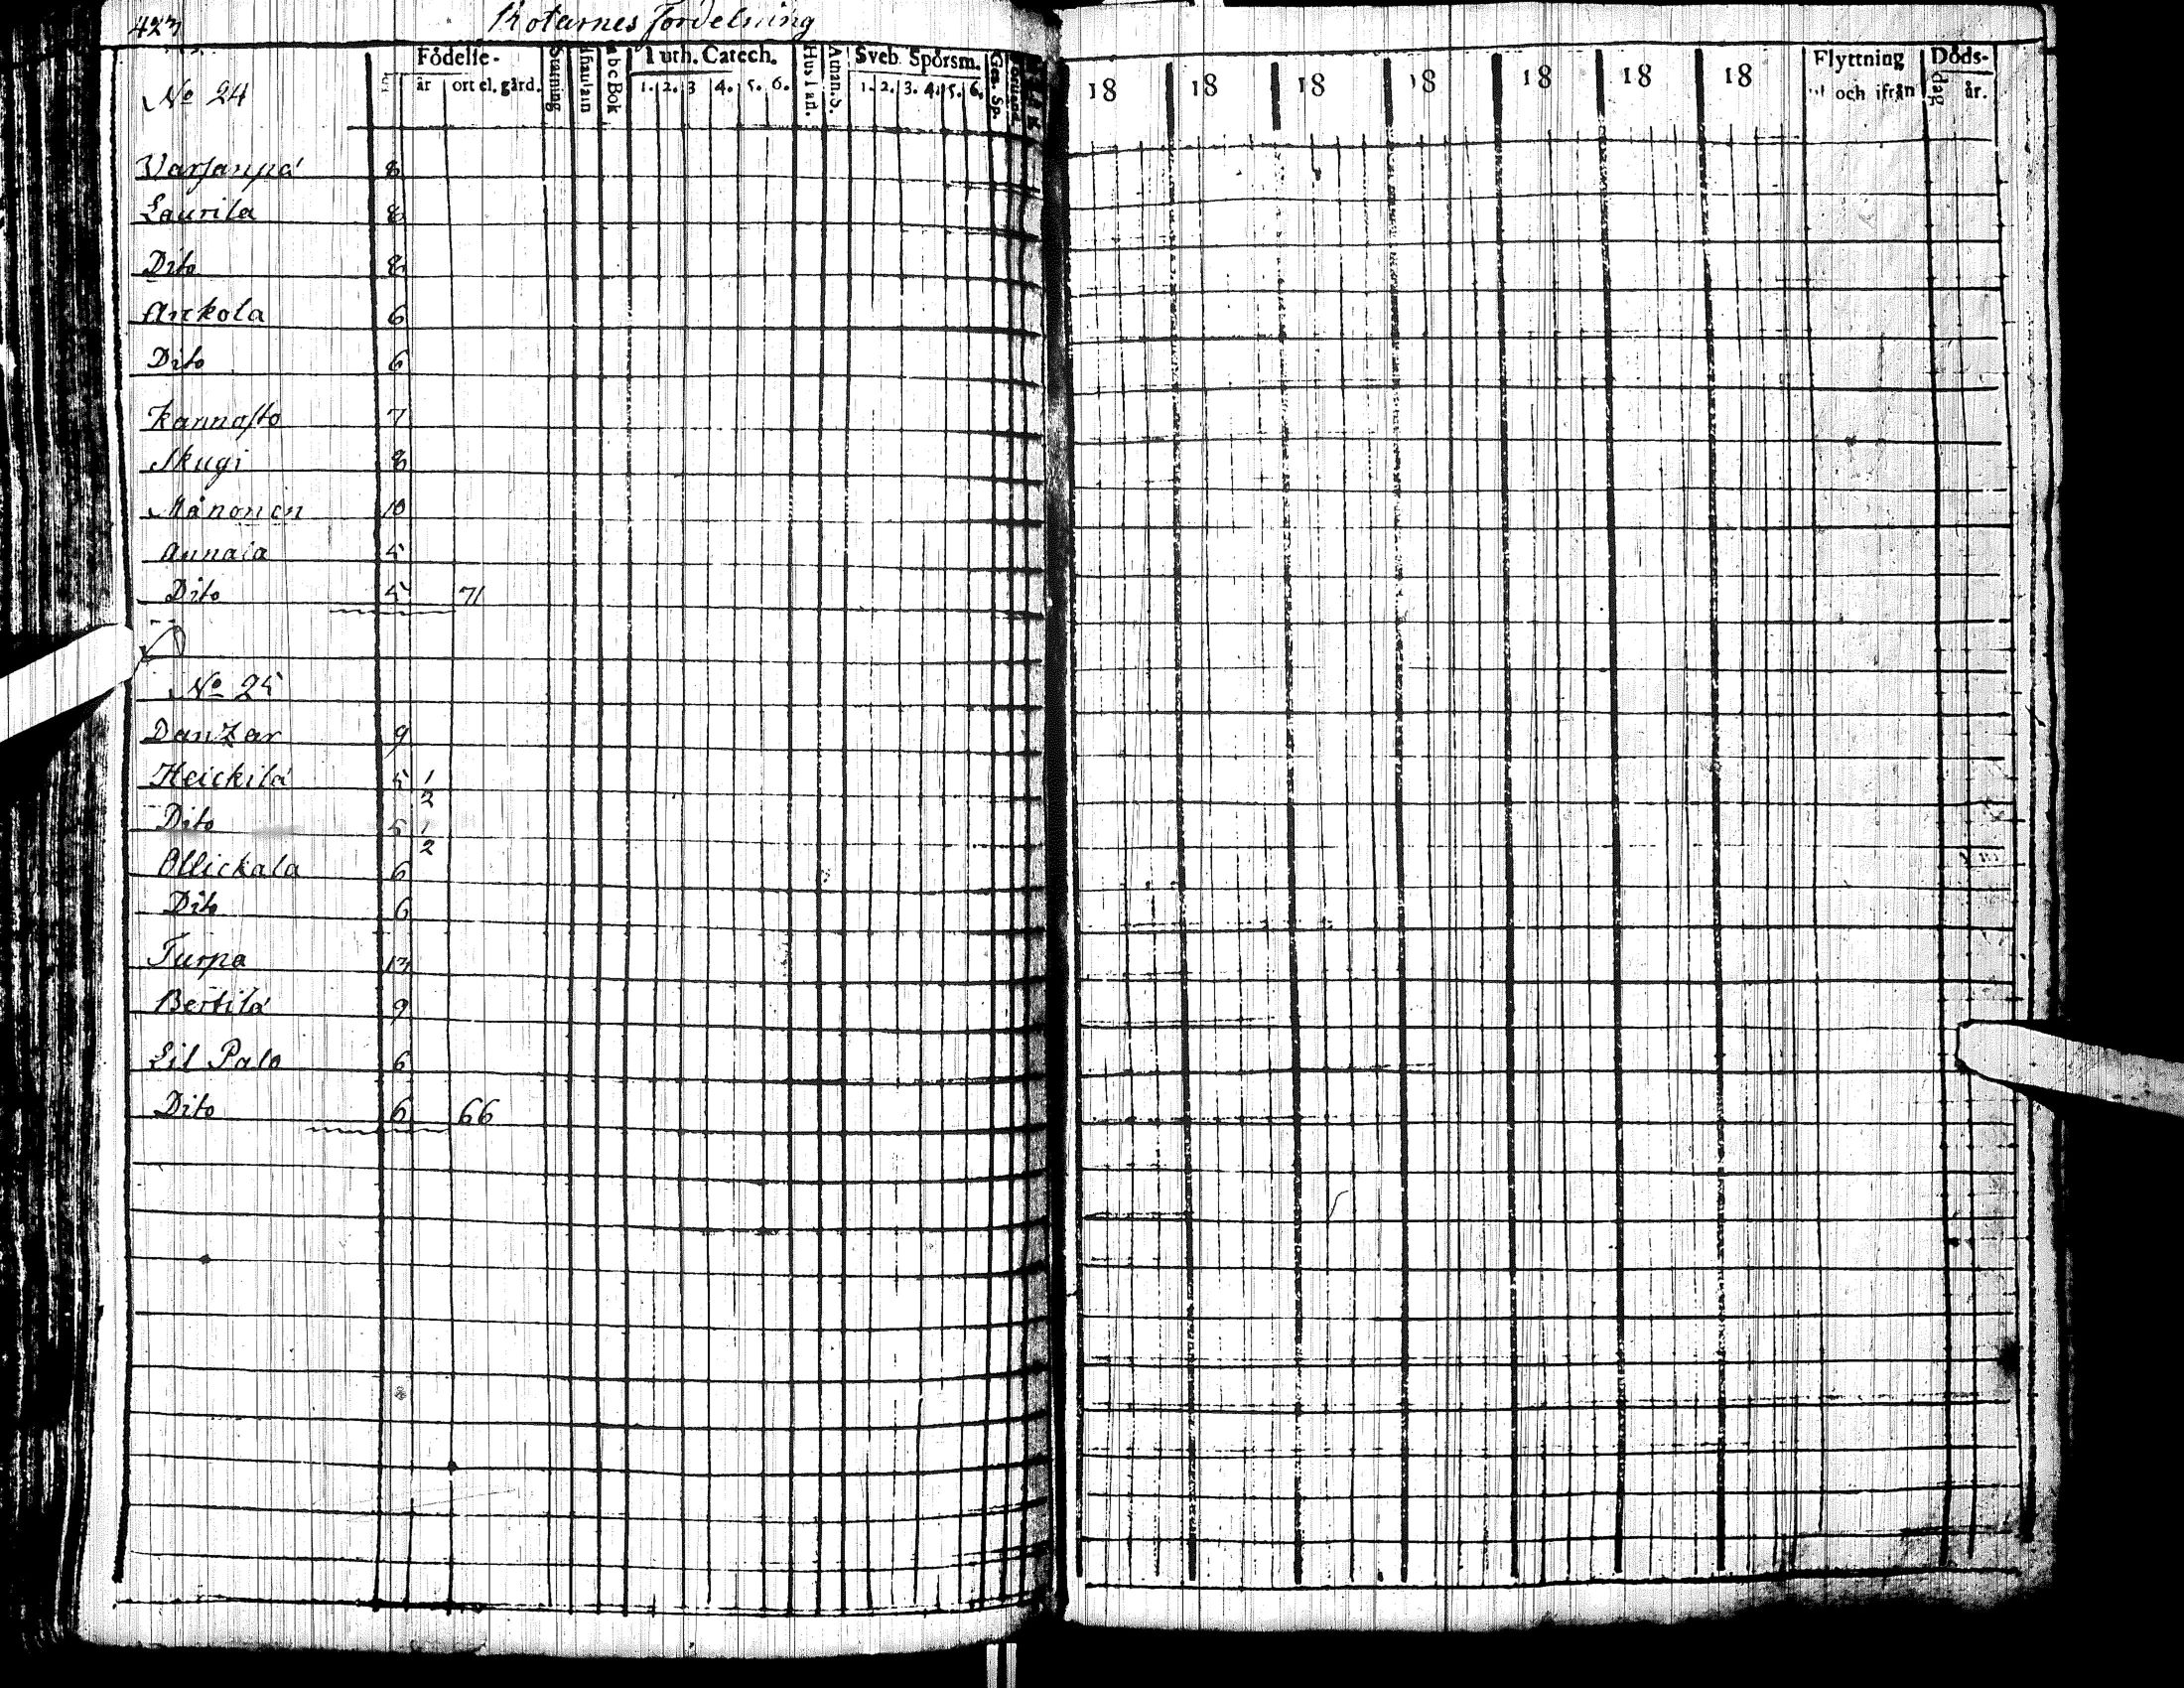 423 Rotarnes Fördelning
Födelse- Luth. Catech. Sveb. Spörsm.
No 24 år ort el. gård. abc Bok 1. 2. 3 4. 5. 6. Hust. Athan. S. 1. 2. 3. 4. 5. 6. Ges. Sp.
Varjanpä 8
Laurila 8
Dito 8
Anckola 6
Dito 6
Kannasto 7
Skugi 8
Månonen 10
Annala 5
Dito 5 71
No 25
Danzar 9
Heickilä 5 1/2
Dito 5 1/2
Ollickala 6
Dito 6
Turpa 13
Bertilä 9
Lil Palo 6
Dito 6 66
18 18 18 18 18 18 18 Flyttning Döds-
och ifrån dag år.